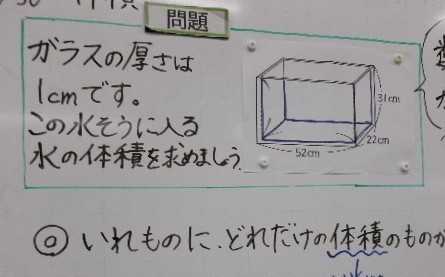 問題
ガラスの厚さは
1cmです。
この水そうに入る
水の体積を求めましょう。
31cm
22cm
52cm
◎ いれものに、どれだけの体積のものが